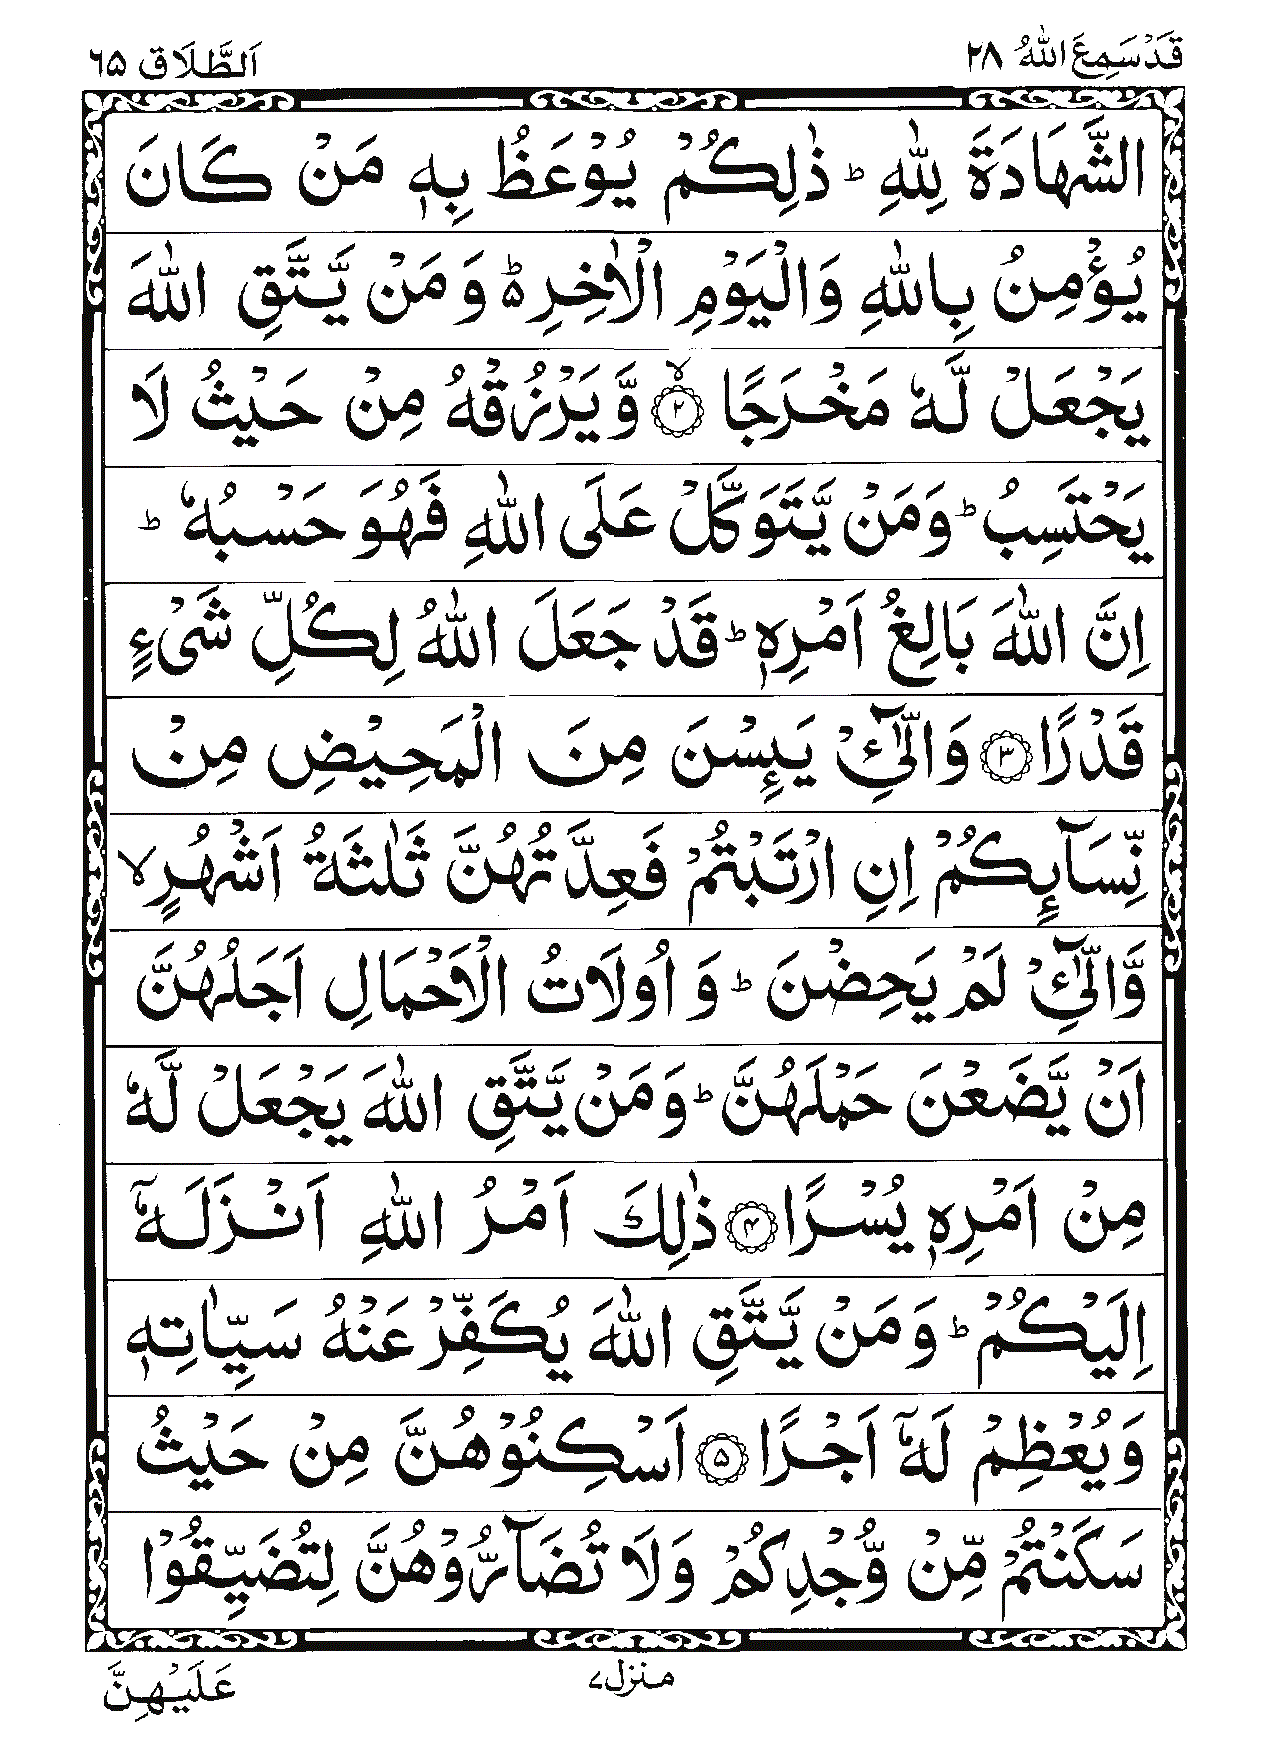 قَدْ سَمِعَ اللّٰهُ ٢٨
اَلطَّلَاق ٦٥
الشَّهَادَةَ لِلّٰهِ ؕ ذٰلِكُمْ يُوْعَظُ بِهٖ مَنْ كَانَ
يُؤْمِنُ بِاللّٰهِ وَالْيَوْمِ الْاٰخِرِ ؕ۬ وَ مَنْ يَّتَّقِ اللّٰهَ
يَجْعَلْ لَّهٗ مَخْرَجًا ۙ﴿۲﴾ وَّيَرْزُقْهُ مِنْ حَيْثُ لَا
يَحْتَسِبُ ؕ وَمَنْ يَّتَوَكَّلْ عَلَى اللّٰهِ فَهُوَ حَسْبُهٗ ؕ
اِنَّ اللّٰهَ بَالِغُ اَمْرِهٖ ؕ قَدْ جَعَلَ اللّٰهُ لِكُلِّ شَىْءٍ
قَدْرًا ﴿۳﴾ وَالّٰٓـِٔىْ يَٮِٕسْنَ مِنَ الْمَحِيْضِ مِنْ
نِّسَآٮِٕكُمْ اِنِ ارْتَبْتُمْ فَعِدَّتُهُنَّ ثَلٰثَةُ اَشْهُرٍ ۙ
وَّالّٰٓـِٔىْ لَمْ يَحِضْنَ ؕ وَ اُولَاتُ الْاَحْمَالِ اَجَلُهُنَّ
اَنْ يَّضَعْنَ حَمْلَهُنَّ ؕ وَمَنْ يَّتَّقِ اللّٰهَ يَجْعَلْ لَّهٗ
مِنْ اَمْرِهٖ يُسْرًا ﴿۴﴾ ذٰلِكَ اَمْرُ اللّٰهِ اَنْزَلَهٗۤ
اِلَيْكُمْ ؕ وَمَنْ يَّتَّقِ اللّٰهَ يُكَفِّرْ عَنْهُ سَيِّاٰتِهٖ
وَيُعْظِمْ لَهٗۤ اَجْرًا ﴿۵﴾ اَسْكِنُوْهُنَّ مِنْ حَيْثُ
سَكَنْتُمْ مِّنْ وُّجْدِكُمْ وَلَا تُضَآرُّوْهُنَّ لِتُضَيِّقُوْا
منزل ٧
عَلَيْهِنَّ